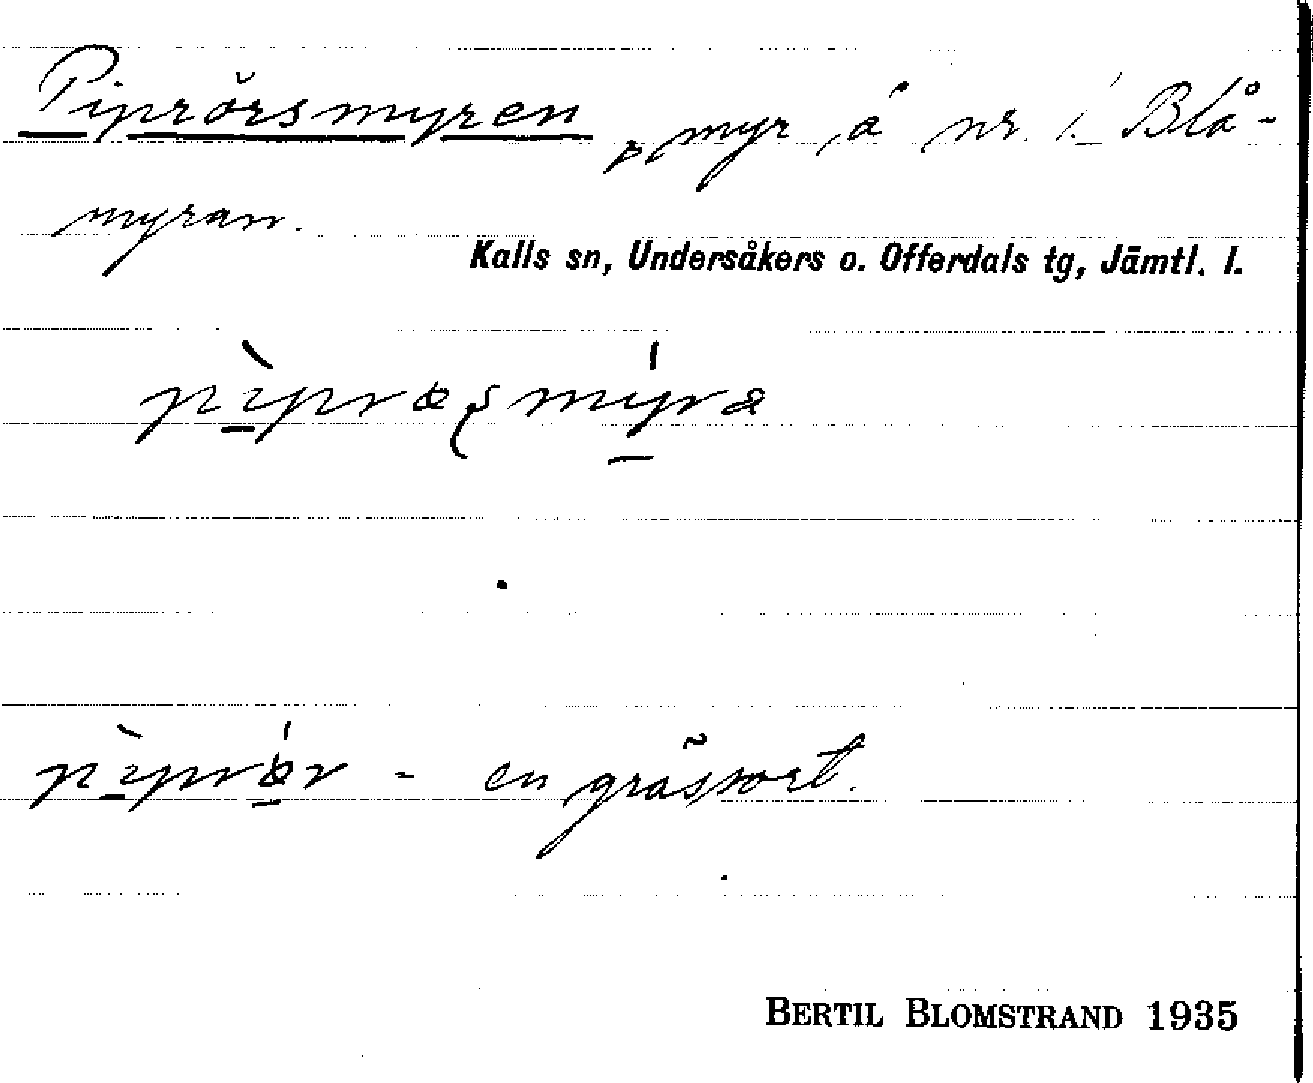 Piprörsmyren, myr å nr. 1. Blå-
myran.
Kalls sn, Undersåkers o. Offerdals tg, Jämtl. l.
- en grässort.
BERTIL BLOMSTRAND 1935